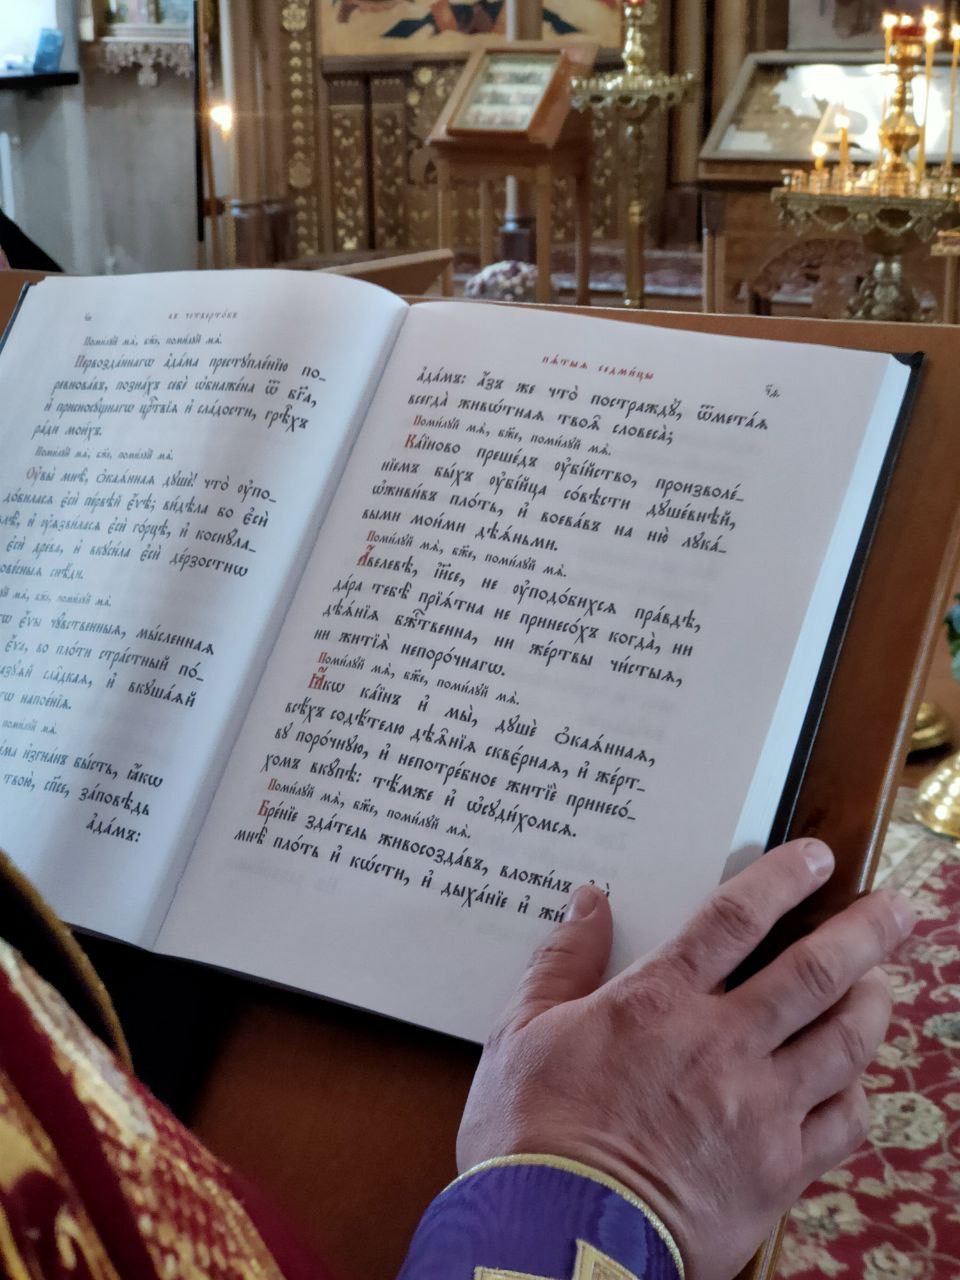 въ четверто́къ
Поми́лꙋй мѧ̀, бж҃е, поми́лꙋй мѧ̀.
Первозда́ннагѡ а҆да́ма престꙋпле́нїю по-
ревнова́въ, позна́хъ себѐ ѡ҆бнаже́на ѿ бг҃а,
и҆ присносꙋ́щнагѡ црⷭ҇твїѧ и҆ сла́дости, грѣ̑хъ
ра́ди мои́хъ.
Поми́лꙋй мѧ̀, бж҃е, поми́лꙋй мѧ̀.
Оу҆вы̀ мнѣ̀, ѻ҆каѧ́ннаѧ дꙋшѐ! что̀ ᲂу҆по-
до́биласѧ є҆сѝ пе́рвѣй є҆́ѵѣ; ви́дѣла бо є҆сѝ
ѕлѣ̀, и҆ ᲂу҆ѧзви́ласѧ є҆сѝ го́рцѣ, и҆ коснꙋ́ла-
є҆сѝ дре́ва, и҆ вкꙋси́ла є҆сѝ де́рзостнѡ
снѣ́ди.
мѧ̀, бж҃е, поми́лꙋй мѧ̀.
є҆́ѵы чꙋ́вственныѧ, мы́сленнаѧ
є҆́ѵа, во пло́ти стра́стный по́-
сла̑дкаѧ, и҆ вкꙋша́ѧй
напое́нїѧ.
поми́лꙋй мѧ̀.
и҆згна́нъ бы́сть, ꙗ҆́кѡ
твою̀, сп҃се, за́повѣдь
а҆да́мъ:
пѧ́тыѧ седми́цы
а҆да́мъ: а҆́зъ же что̀ постраждꙋ̀, ѿмета́ѧ
всегда̀ живѡ́тнаѧ твоѧ̑ словеса̀;
Поми́лꙋй мѧ̀, бж҃е, поми́лꙋй мѧ̀.
Ка́їново преше́дъ ᲂу҆бі́йство, произволе́-
нїемъ бы́хъ ᲂу҆бі́йца со́вѣсти дꙋше́внѣй,
ѡ҆живи́въ пло́ть, и҆ воева́въ на ню̀ лꙋка́-
выми мои́ми дѣѧ́ньми.
Поми́лꙋй мѧ̀, бж҃е, поми́лꙋй мѧ̀.
А҆́велевѣ, і҆и҃се, не ᲂу҆подо́бихсѧ пра́вдѣ,
да́ра тебѣ̀ прїѧ́тна не принесо́хъ когда̀, ни
дѣѧ̑нїѧ бжⷭ҇твенна, ни же́ртвы чи́стыѧ,
ни житїѧ̀ непоро́чнагѡ.
Поми́лꙋй мѧ̀, бж҃е, поми́лꙋй мѧ̀.
Ꙗ҆́кѡ ка́їнъ и҆ мы̀, дꙋшѐ ѻ҆каѧ́ннаѧ,
всѣ́хъ содѣ́телю дѣѧ̑нїѧ сквє́рнаѧ, и҆ же́рт-
вꙋ поро́чнꙋю, и҆ непотре́бное житїѐ принесо́-
хомъ вкꙋ́пѣ: тѣ́мже и҆ ѡ҆сꙋди́хомсѧ.
Поми́лꙋй мѧ̀, бж҃е, поми́лꙋй мѧ̀.
Бре́нїе зда́тель живосозда́въ, вложи́лъ
мнѣ̀ пло́ть и҆ кѡ́сти, и҆ дыха́нїе и҆